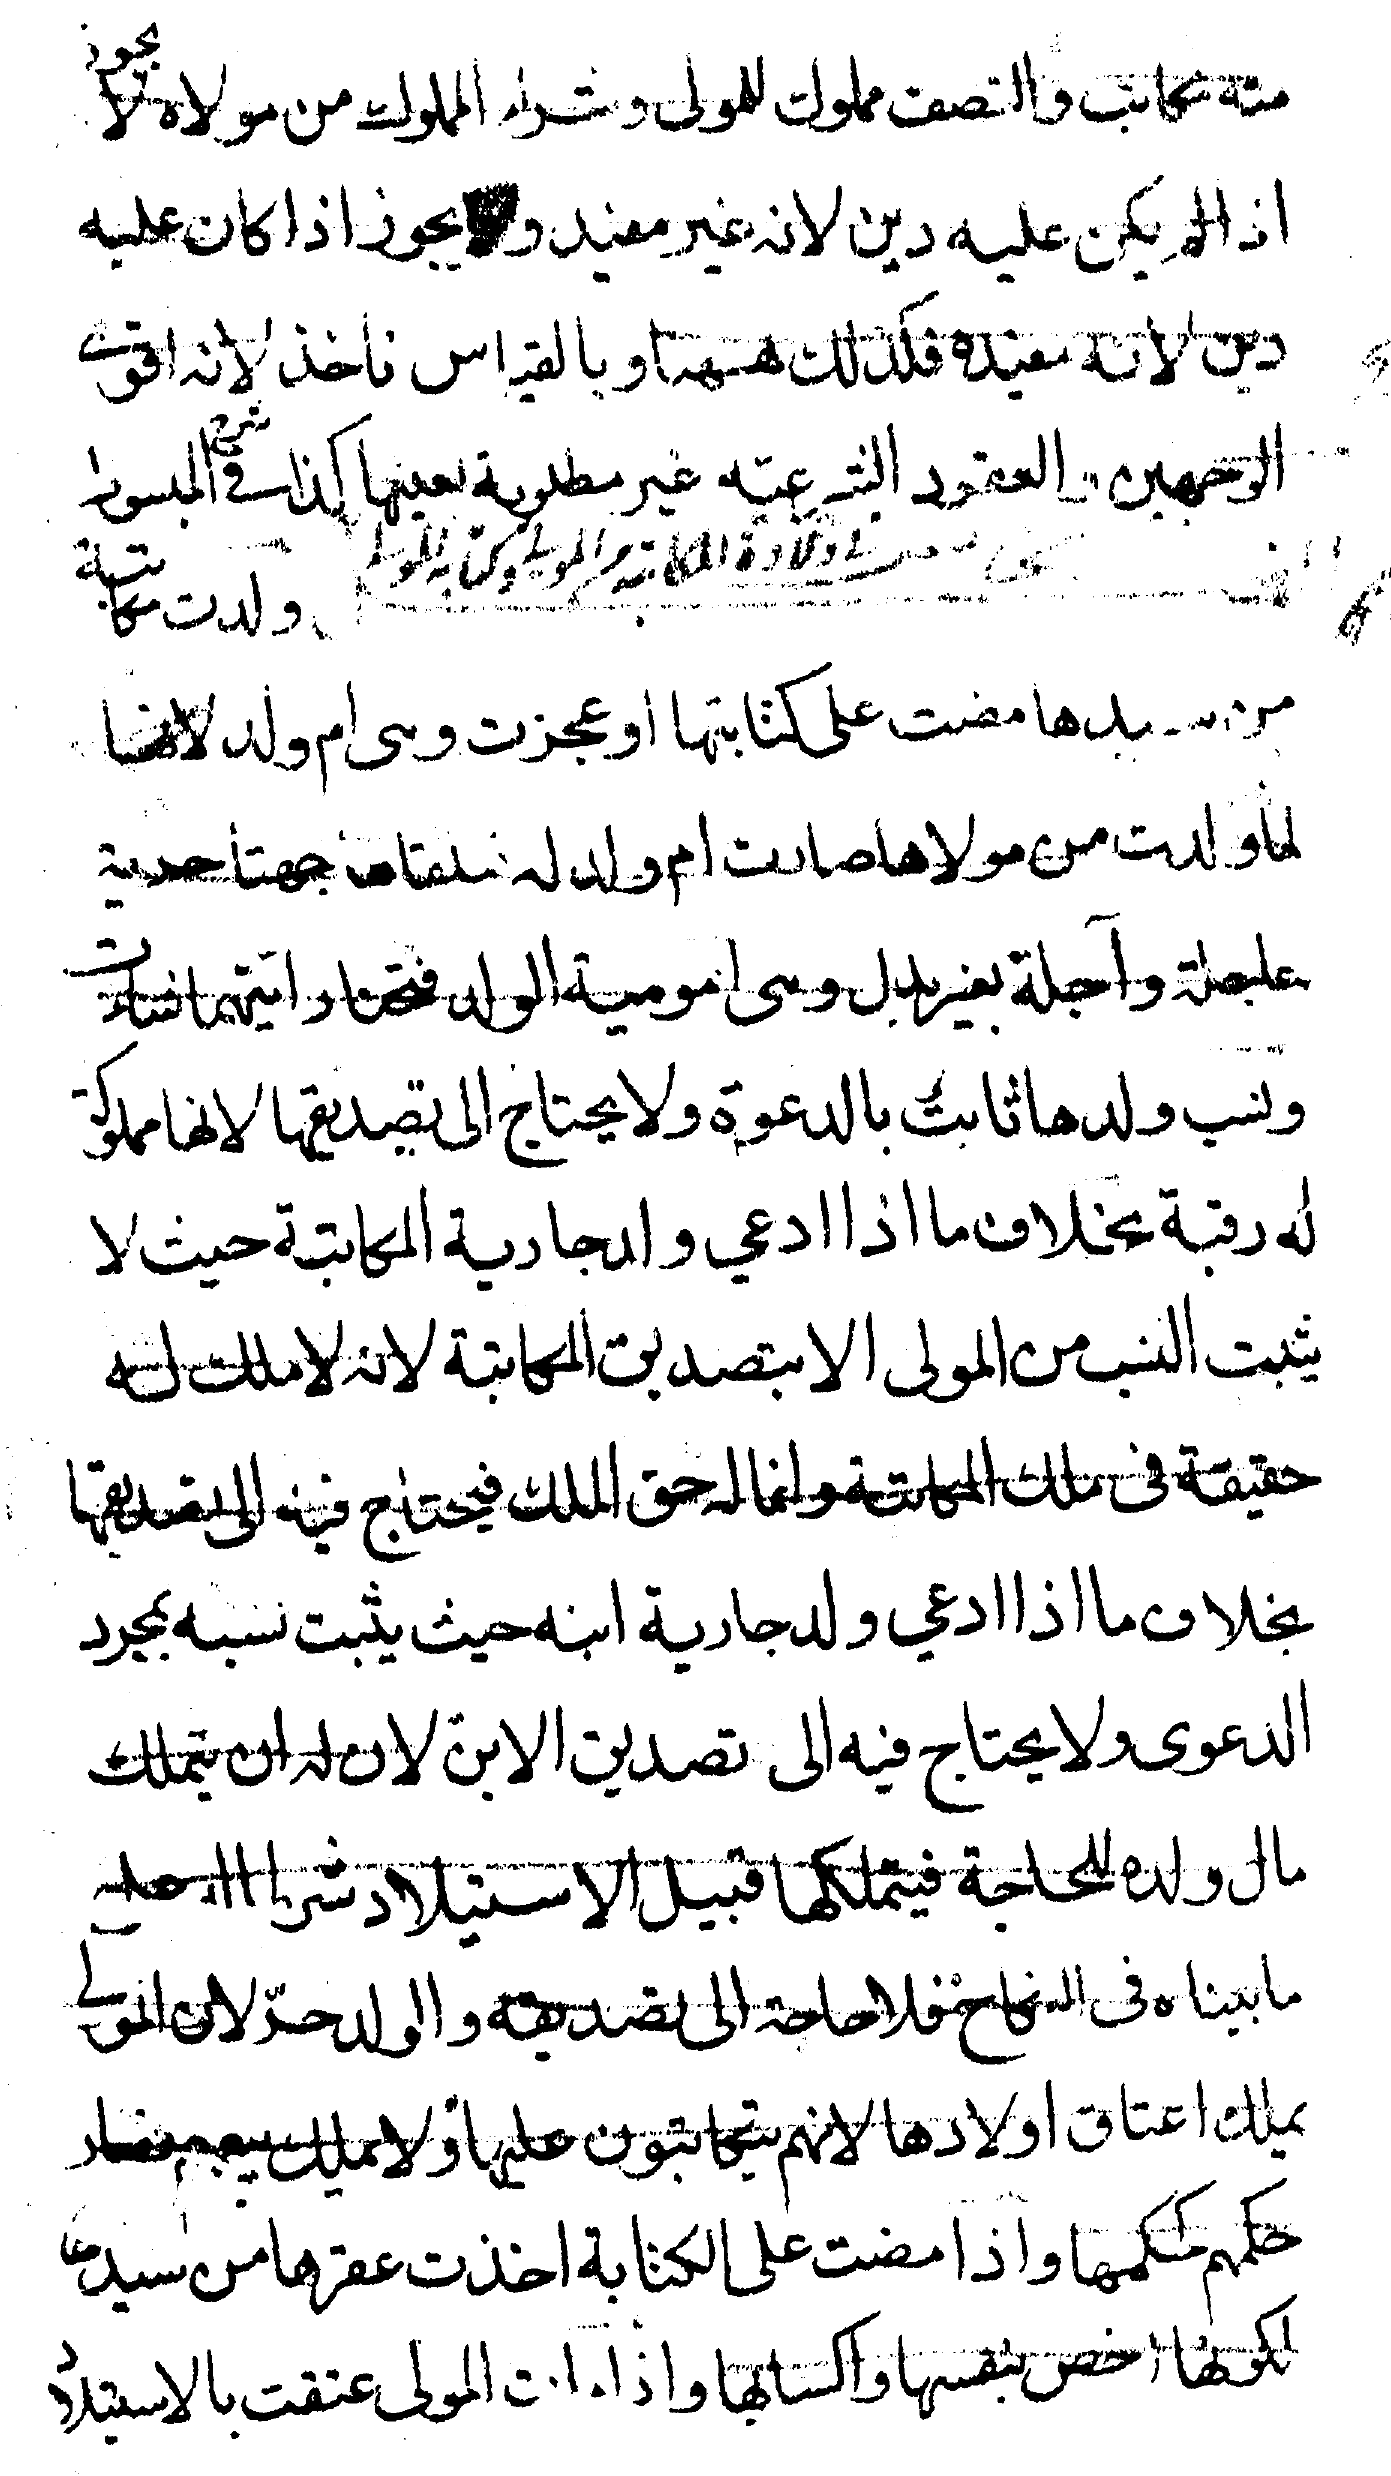 منه مكاتب والنصف مملوك للمولى وشراء المملوك من مولاه لا يجوز
اذا لم يكن عليه دين لانه غير مفيد ويجوز اذا كان عليه
دين لانه مفيده فكذلك ههنا وبالقياس ناخذ لانه اقوى
الوجهين والعقود الشرعية غير مطلوبة لعينها كذا في شرح المبسوط
في ولادة المكاتبة من المولى
ولدت مكاتبة
من سيدها مضت على كتابتها او عجزت وهي ام ولد لانها
لما ولدت من مولاها صارت ام ولد له فتلقاها جهتا حرية
عاجلة وآجلة بغير بدل وهي امومية الولد فتختار ايتهما شاءت
ونسب ولدها ثابت بالدعوة ولا يحتاج الى تصديقها لانها مملوكة
له رقبة بخلاف ما اذا ادعى ولد جارية المكاتبة حيث لا
يثبت النسب من المولى الا بتصديق المكاتبة لانه لا ملك له
حقيقة في ملك المكاتبة وانما له حق الملك فيحتاج فيه الى تصديقها
بخلاف ما اذا ادعي ولد جارية ابنه حيث يثبت نسبه بمجرد
الدعوى ولا يحتاج فيه الى تصديق الابن لان له ان يتملك
مال ولده للحاجة فيتملكها قبيل الاستيلاد شرطا له على
ما بيناه في النكاح فلا حاجة الى تصديقه والولد حرّ لان المولى
يملك اعتاق اولادها لانهم يتكاتبون عليها ولا يملك بيعهم فصار
حكمهم كحكمها واذا مضت على الكتابة اخذت عقرها من سيدها
لكونها اخص بنفسها واكسابها واذا مات المولى عتقت بالاستيلاد